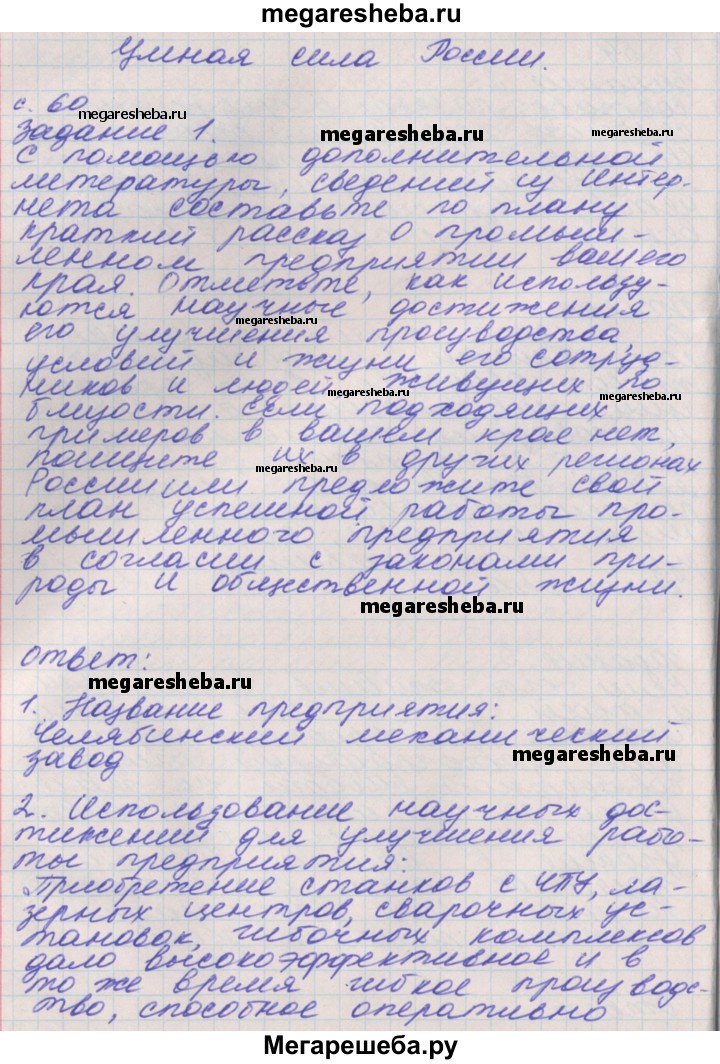 megaresheba.ru
Умная сила России.
с. 60
megaresheba.ru
Задание 1.
megaresheba.ru
megaresheba.ru
С помощью дополнительной
литературы, сведений из Интер-
нета составьте по плану
краткий рассказ о промыш-
ленном предприятии вашего
края. Отметьте, как использу-
ются научные достижения
megaresheba.ru
его улучшения производства,
условий и жизни его сотруд-
ников и людей живущих по
megaresheba.ru
megaresheba.ru
близости. Если подходящих
примеров в вашем крае нет,
поищите их в других регионах
megaresheba.ru
России или предложите свой
план успешной работы про-
мышленного предприятия
в согласии с законами при-
роды и общественной жизни.
megaresheba.ru
Ответ:
megaresheba.ru
1. Название предприятия:
Челябинский механический
завод
megaresheba.ru
2. Использование научных дос-
тижений для улучшения рабо-
ты предприятия:
Приобретение станков с ЧПУ, ла-
зерных центров, сварочных ус-
тановок, гибочных комплексов
дало высокоэффективное и в
то же время гибкое производс-
тво, способное оперативно
Мегарешеба.ру